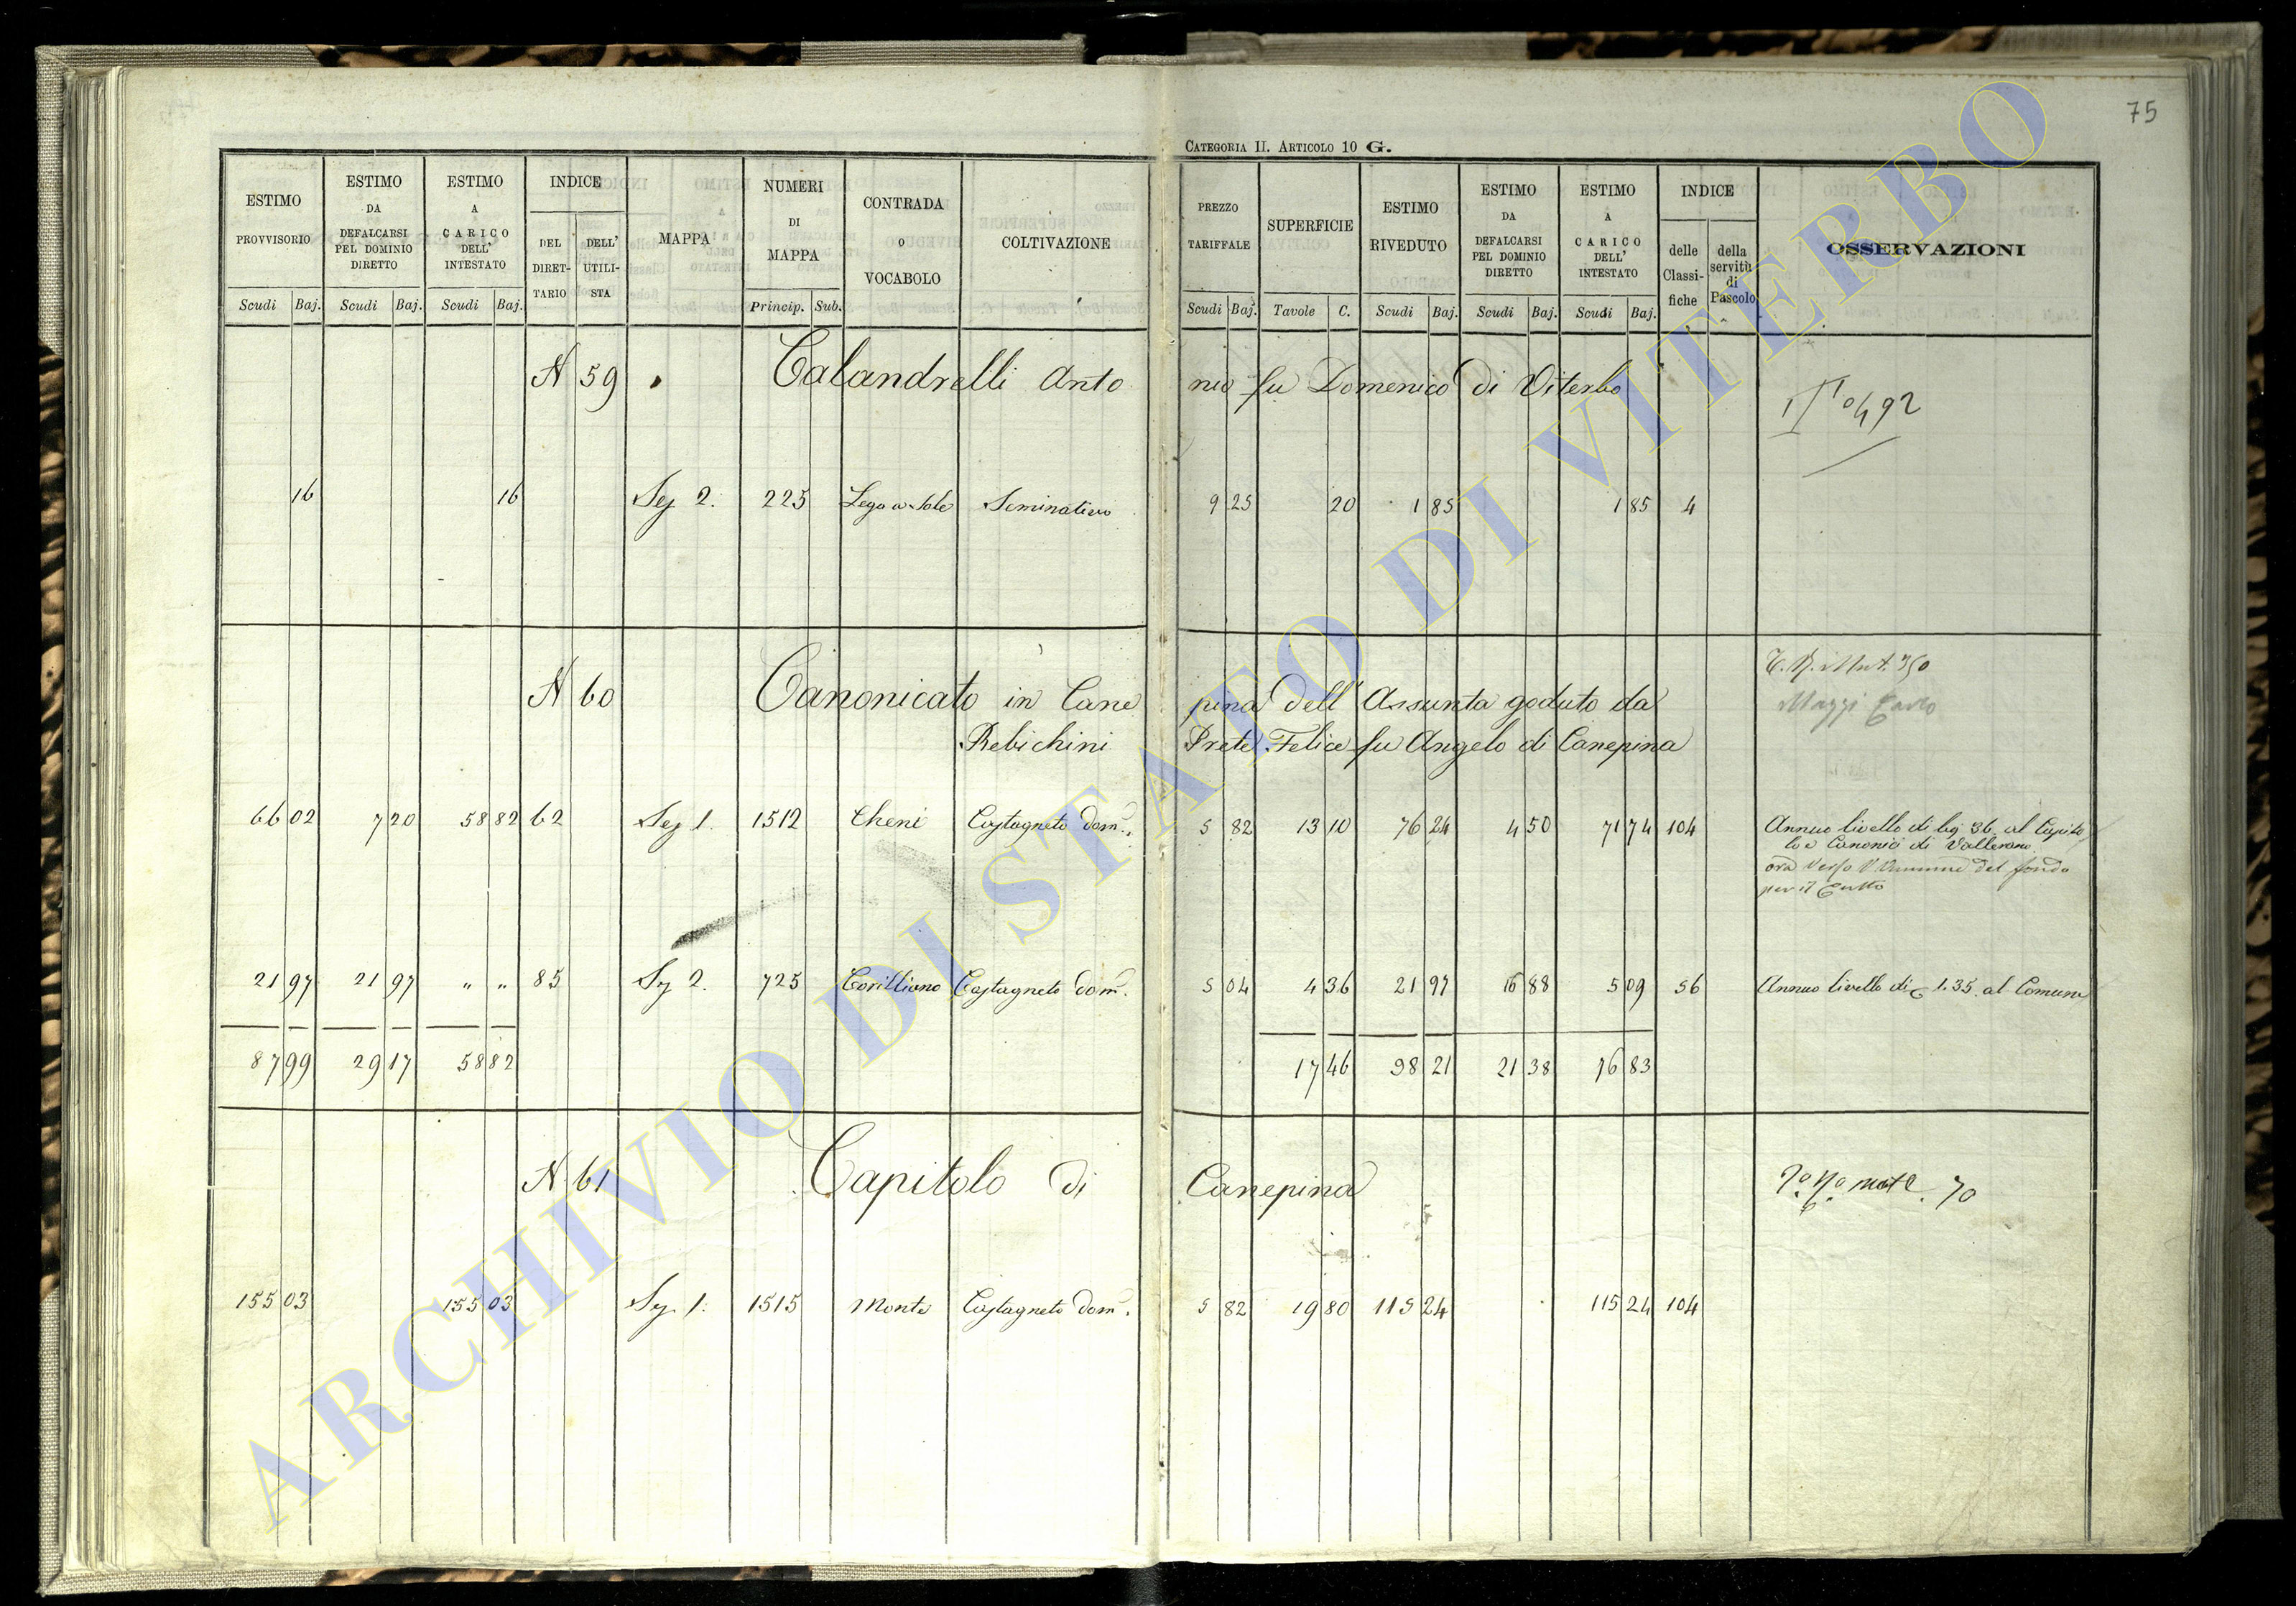 75
CATEGORIA II. ARTICOLO 10 G.
ESTIMO PROVVISORIO Scudi Baj.
ESTIMO DA DEFALCARSI PEL DOMINIO DIRETTO Scudi Baj.
ESTIMO A CARICO DELL' INTESTATO Scudi Baj.
INDICE DEL DIRET-TARIO DELL' UTILI-STA
MAPPA
NUMERI DI MAPPA Princip. Sub.
CONTRADA O VOCABOLO
COLTIVAZIONE
PREZZO TARIFFALE Scudi Baj.
SUPERFICIE Tavole C.
ESTIMO RIVEDUTO Scudi Baj.
ESTIMO DA DEFALCARSI PEL DOMINIO DIRETTO Scudi Baj.
ESTIMO A CARICO DELL' INTESTATO Scudi Baj.
INDICE delle Classi-fiche della servitù di Pascolo
OSSERVAZIONI
N 59 Calandrelli Anto nio fu Domenico di Viterbo 492
16 16 Seg 2. 225 Seminativo 9 25 20 1 85 1 85 4
N 60 Canonicato in Cane pina dell'Assunta goduto da
Rebichini Prete Felice fu Angelo di Canepina
Maggi Carlo
66 02 7 20 58 82 62 Seg 1. 1512 Cheni Castagneto dom. 5 82 13 10 76 24 4 50 71 74 104 Annuo livello di 36 al Capito
lo e Canonici di Vallerano
ora verso del fondo
per il Culto
21 97 21 97 " " 85 Sg 2. 725 Corilliano Castagneto dom. 5 04 4 36 21 97 16 88 5 09 56 Annuo livello di 1.35. al Comune
87 99 29 17 58 82 17 46 98 21 21 38 76 83
N. 61 Capitolo di Canepina 70
155 03 155 03 Sg. 1. 1515 Monte Castagneto dom. 5 82 19 80 115 24 115 24 104
ARCHIVIO DI STATO DI VITERBO